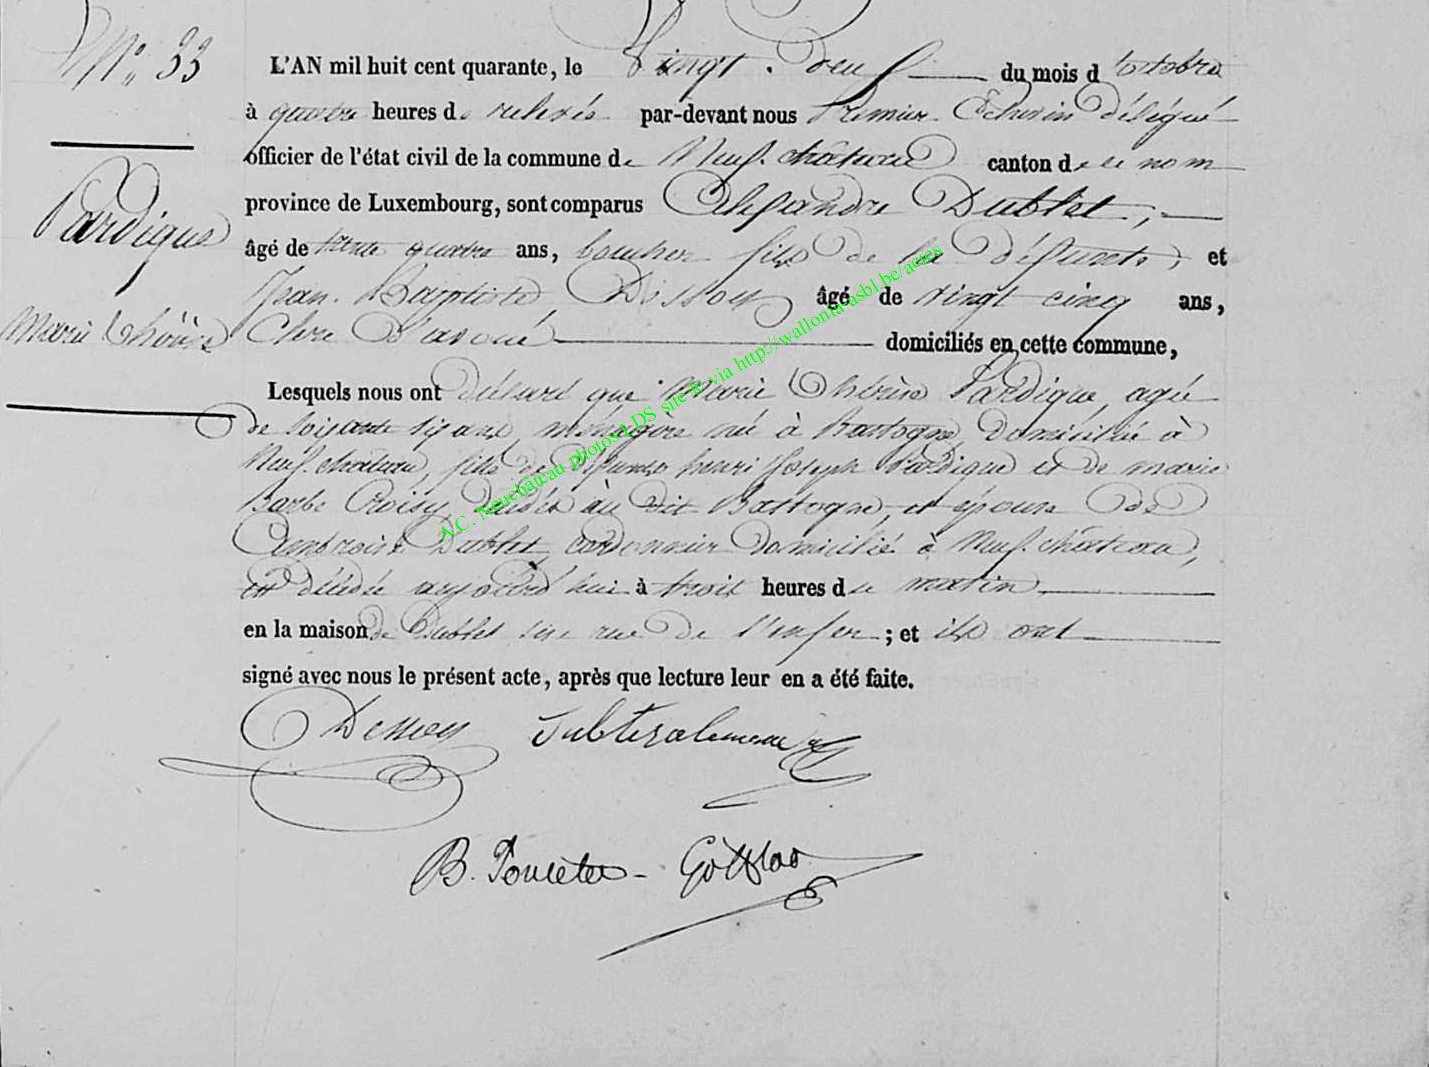 N° 33
L'AN mil huit cent quarante, le Vingt neuf du mois d'octobre
à quatre heures de relevée par-devant nous Premier Echevin délégué
officier de l'état civil de la commune de Neufchâteau canton de ce nom
province de Luxembourg, sont comparus Alexandre Dublet,
Pardique
âgé de trente quatre ans, boucher fils de la défunte, et
Jean Baptiste âgé de vingt cinq ans,
Marie Thérèse
Clerc D'avoué domiciliés en cette commune,
Lesquels nous ont déclaré que Marie Thérèse Pardique, agée
de soixante six ans, ménagère née à Bastogne, domiciliée à
Neufchâteau, fille de défunts henri Joseph Pardique et de marie
Barbe Croisy, décédés au dit Bastogne, et épouse de
Ambroise Dublet, cordonnier domicilié à Neufchâteau,
est décédée aujourd'hui à trois heures du matin
en la maison de Dublet sise rue de l'enfer ; et ils ont
signé avec nous le présent acte, après que lecture leur en a été faite.
B. Poncelet
A.C. Neuchâteau photos LDS site & via http://wallonia-asbl.be/actes